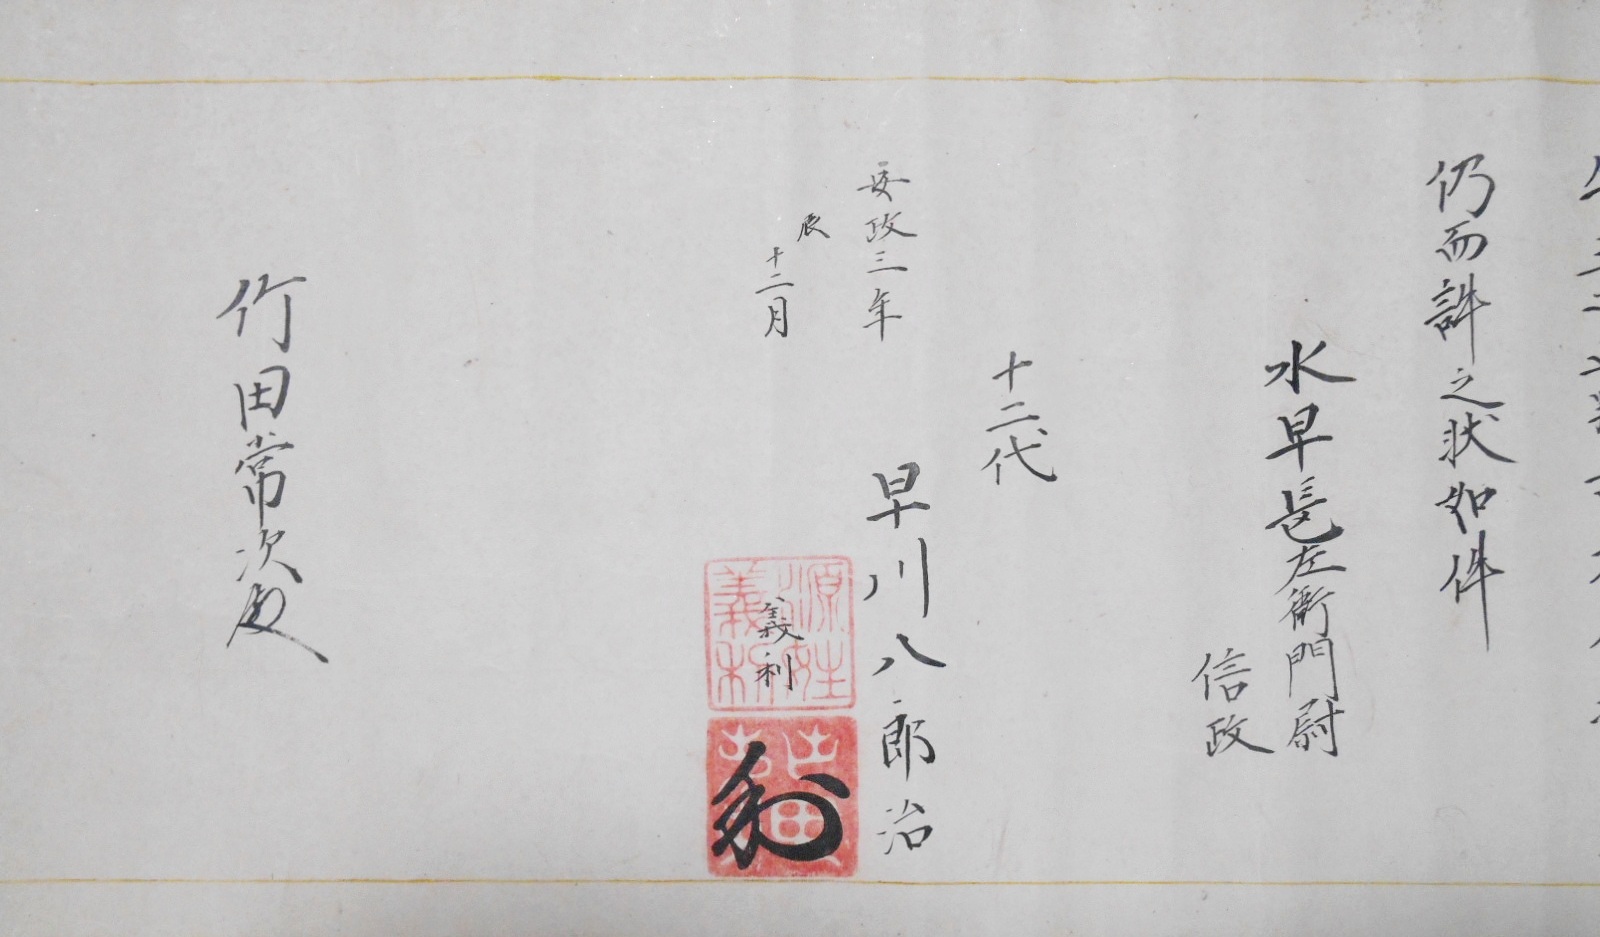 仍而許之状如件
水早長左衛門尉
信政
十二代
早川八郎治
義利
源姓
義利
安政三年
辰
十二月
竹田常次殿